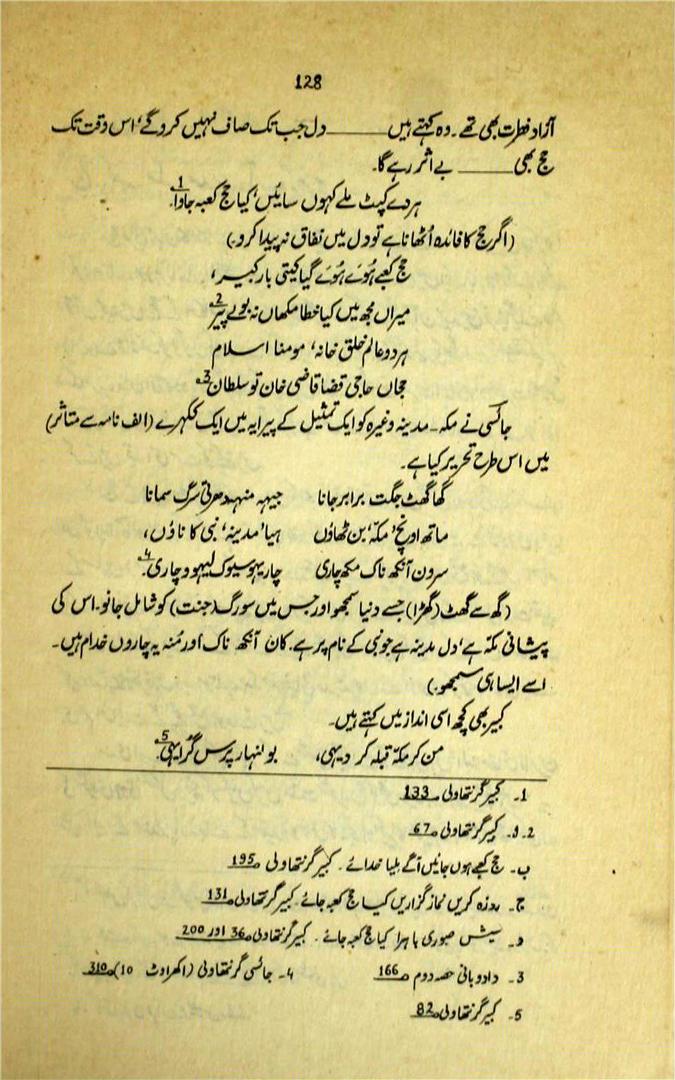 128
آزاد فطرت بھی تھے۔ وہ کہتے ہیں ——— دل جب تک صاف نہیں کرو گے، اس وقت تک
حج بھی ——— بے اثر رہے گا۔
ہردے کپٹ ملے کہوں سائیں، کیا حج کعبہ جاوا۔1
(اگر حج کا فائدہ اُٹھانا ہے تو دل میں نفاق نہ پیدا کرو۔)
حج کعبے ہوئے ہوئے گیا کیتی بار کبیر،
میراں مجھ میں کیا خطا مکھاں نہ بولے پیر2
ہر دو عالم خلق خانہ، مومنا اسلام
حجاں حاجی قضا قاضی خان تو سلطان۔3
جائسی نے مکہ۔ مدینہ وغیرہ کو ایک تمثیل کے پیرایہ میں ایک ککہرے (الف نامہ سے متاثر)
میں اس طرح تحریر کیا ہے۔
گھا گھٹ جگت برابر جانا جیہہ منہہ دھرتی سرگ سمانا
ماتھ اونچ، مکہ، بن ٹھاؤں ہیا، مدینہ، نبی کا ناؤں،
سرون آنکھ ناک مکھ چاری چار یہو سیوک لیہو وچاری۔4
(گھ سے گھٹ (گھڑا) جسے دنیا سمجھو اور جس میں سورگ (جنت) کو شامل جانو۔ اس کی
پیشانی مکہ ہے، دل مدینہ ہے جو نبی کے نام پر ہے۔ کان آنکھ ناک اور مُنہ یہ چاروں خدام ہیں۔
اسے ایسا ہی سمجھو۔)
کبیر بھی کچھ اسی انداز میں کہتے ہیں۔
من کر مکہ قبلہ کر دیہی، بولنہار پرس گر ایہی۔5
1۔ کبیر گرنتھاولی صـ 133
2۔ ا۔ کبیر گرنتھاولی صـ 67
ب۔ حج کعبے ہوں جائیں آگے بلیا خدائے۔ کبیر گرنتھاولی صـ 195
ج۔ روزہ کریں نماز گزاریں کیا حج کعبہ جائے۔ کبیر گرنتھاولی صـ 131
د۔ سیش صبوری باہرا کیا حج کعبہ جائے۔ کبیر گرنتھاولی صـ 36 اور 200
3۔ دادو بانی حصہ دوم صـ 166 4۔ جائسی گرنتھاولی (اکھراوٹ 10) صـ 310
5۔ کبیر گرنتھاولی صـ 82